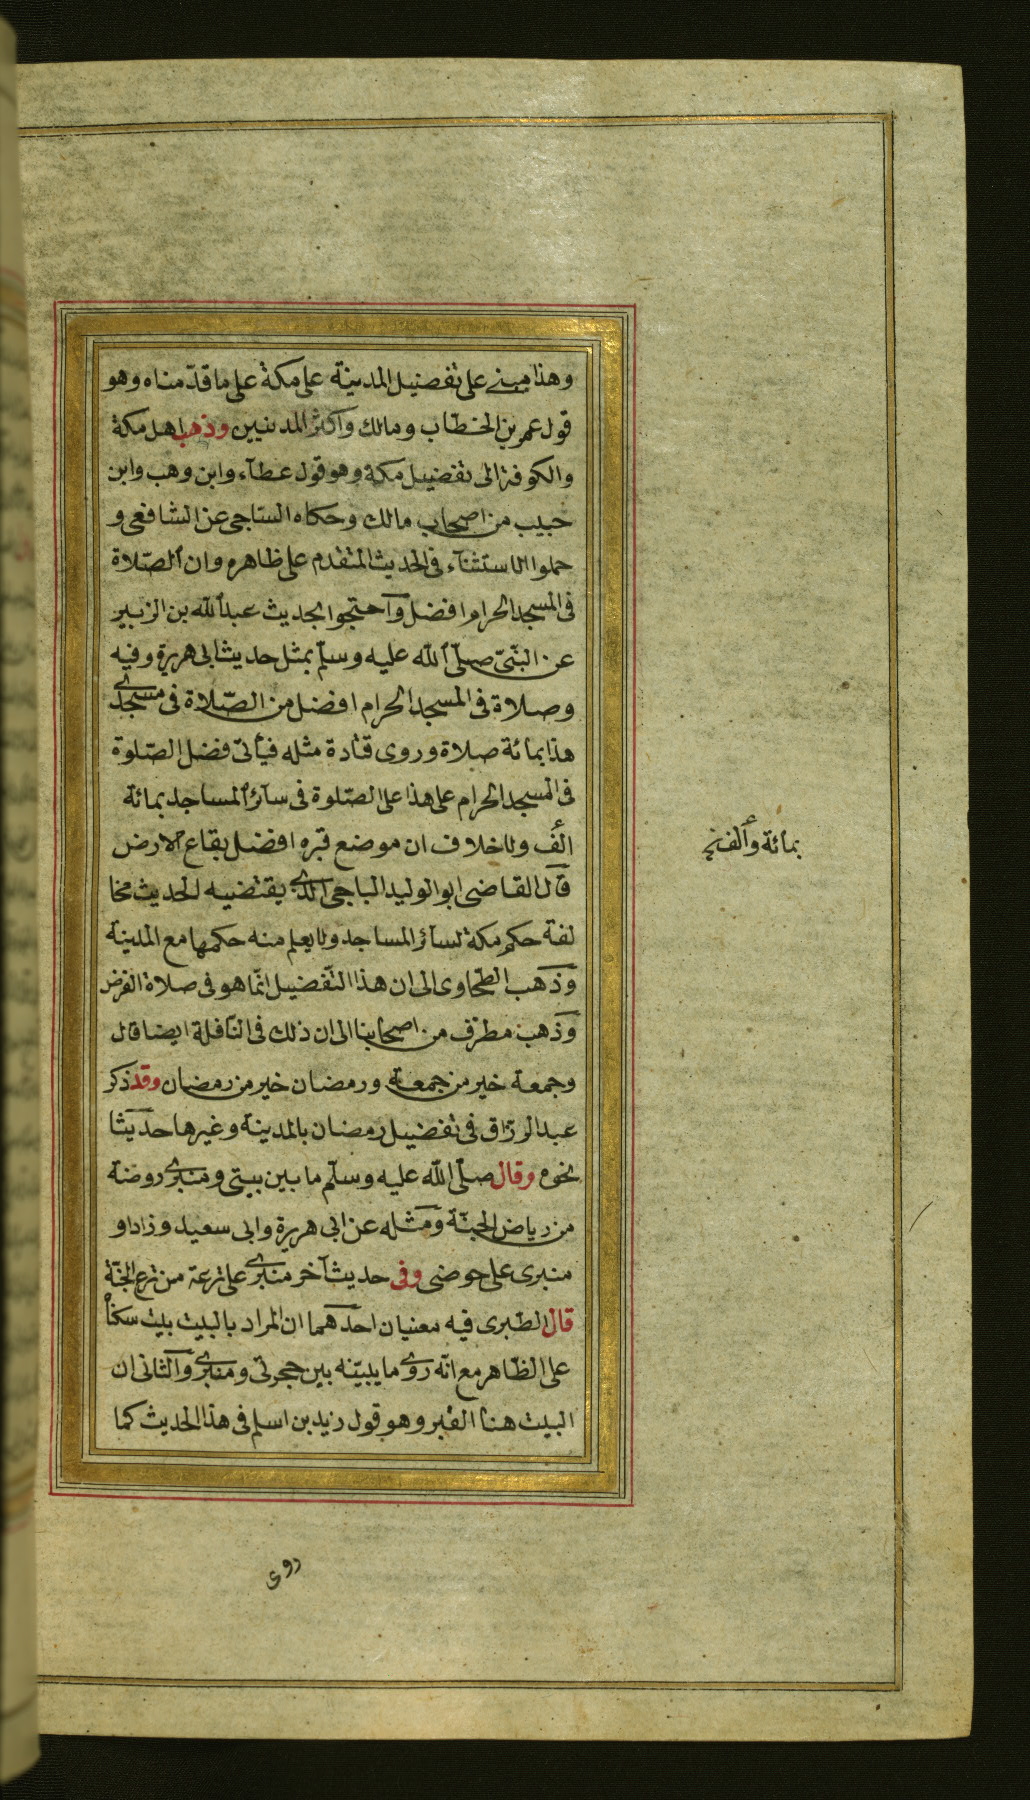 وهذا مبنى على تفضيل المدينة على مكة على ما قدّمناه وهو
قول عمر بن الخطّاب ومالك واكثر المدنيين وذهب اهل مكة
والكوفة الى تفضيل مكة وهو قول عطآء وابن وهب وابن
حبيب من اصحاب مالك وحكاه الساجى عن الشافعى و
حملوا الاستثنآء فى الحديث المتقدم على ظاهره وان الصّلاة
فى المسجد الحرام افضل واحتجوا بحديث عبد الله بن الزبير
عن النّبىّ صلّى الله عليه وسلّم بمثل حديث ابى هريرة وفيه
وصلاة فى المسجد الحرام افضل من الصّلاة فى مسجدى
هذا بمائة صلاة وروى قتادة مثله فيأتى فضل الصّلوة
فى المسجد الحرام على هذا على الصّلوة فى سائر المساجد بمائة
الف ولا خلاف ان موضع قبره افضل بقاع الارض
قال القاضى ابو الوليد الباجى الذى يقتضيه الحديث مخا
لفة حكم مكة لسائر المساجد ولا يعلم منه حكمها مع المدينة
وذهب الطّحاوى الى ان هذا التّفضيل انّما هو فى صلاة الفرض
وذهب مطرّف من اصحابنا الى ان ذلك فى النّافلة ايضا قال
وجمعة خير من جمعة ورمضان خير من رمضان وقد ذكر
عبد الرزّاق فى تفضيل رمضان بالمدينة وغيرها حديثا
نحوه وقال صلّى الله عليه وسلّم ما بين بيتى ومنبرى روضة
من رياض الجنّة ومثله عن ابى هريرة وابى سعيد وزاد او
منبرى على حوضى وفى حديث آخر منبرى على ترعة من ترع الجنّة
قال الطّبرى فيه معنيان احدهما ان المراد بالبيت بيت سكناه
على الظّاهر مع انّه روى ما يبيّنه بين حجرتى ومنبرى والثانى ان
البيت هنا القبر وهو قول زيد بن اسلم فى هذا الحديث كما
بمائة وألف
روى